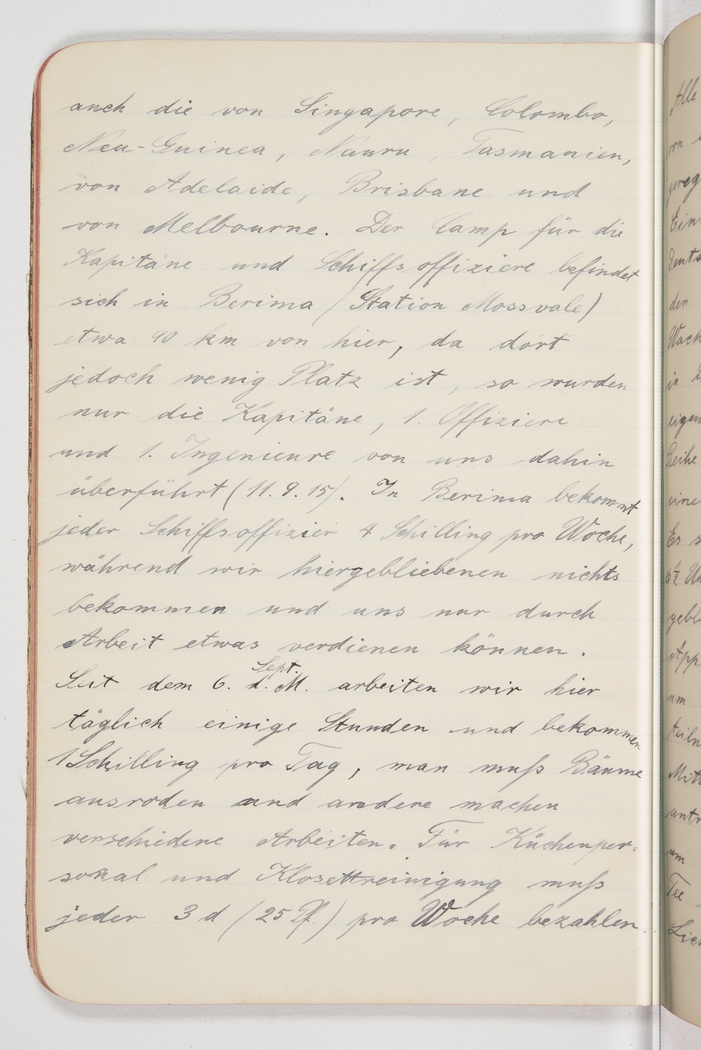 auch die von Singapore, Colombo,
Neu-Guinea, Nauru, Tasmanien,
von Adelaide, Brisbane und
von Melbourne. Der Camp für die
Kapitäne und Schiffsoffiziere befindet
sich in Berima (Station Mossvale)
etwa 90 km von hier, da dort
jedoch wenig Platz ist, so wurden
nur die Kapitäne, 1. Offiziere
und 1. Ingenieure von uns dahin
überführt (11.9.15). In Berima bekommt
jeder Schiffsoffizier 4 Schilling pro Woche,
während wir hiergebliebenen nichts
bekommen und uns nur durch
Arbeit etwas verdienen können.
Sept.
Seit dem 6. d. M. arbeiten wir hier
täglich einige Stunden und bekommen
1 Schilling pro Tag, man muß Bäume
ausroden und andere machen
verschiedene Arbeiten. Für Küchenper-
sonal und Klosettreinigung muß
jeder 3 d (25 Pf.) pro Woche bezahlen.
Alle
von
Ein
den
in
eigen
Reihe
eine
Es
um
um
Tee